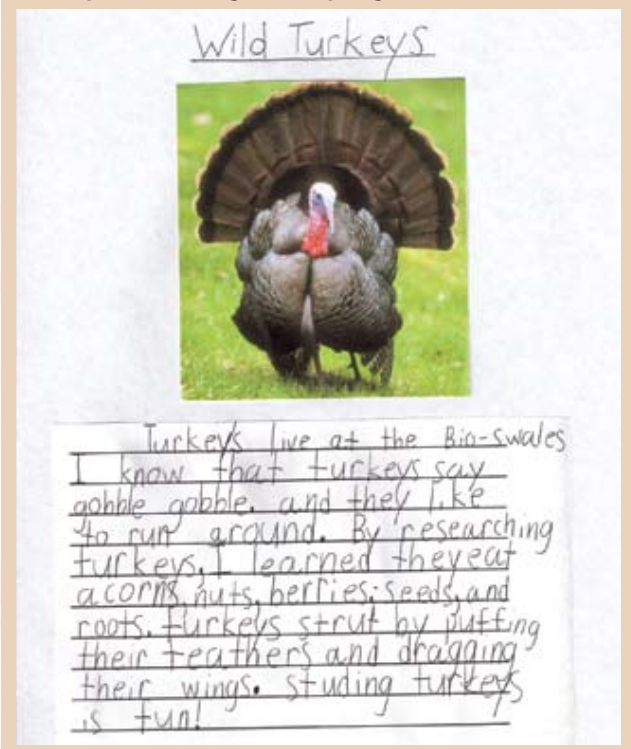 Wild Turkeys
Turkeys live at the Bio-Swales
I know that turkeys say
gobble gobble. and they like
to run around. By researching
turkeys, I learned they eat
acorns, nuts, berries, seeds, and
roots. turkeys strut by puffing
their feathers and dragging
their wings. studing turkeys
is fun!